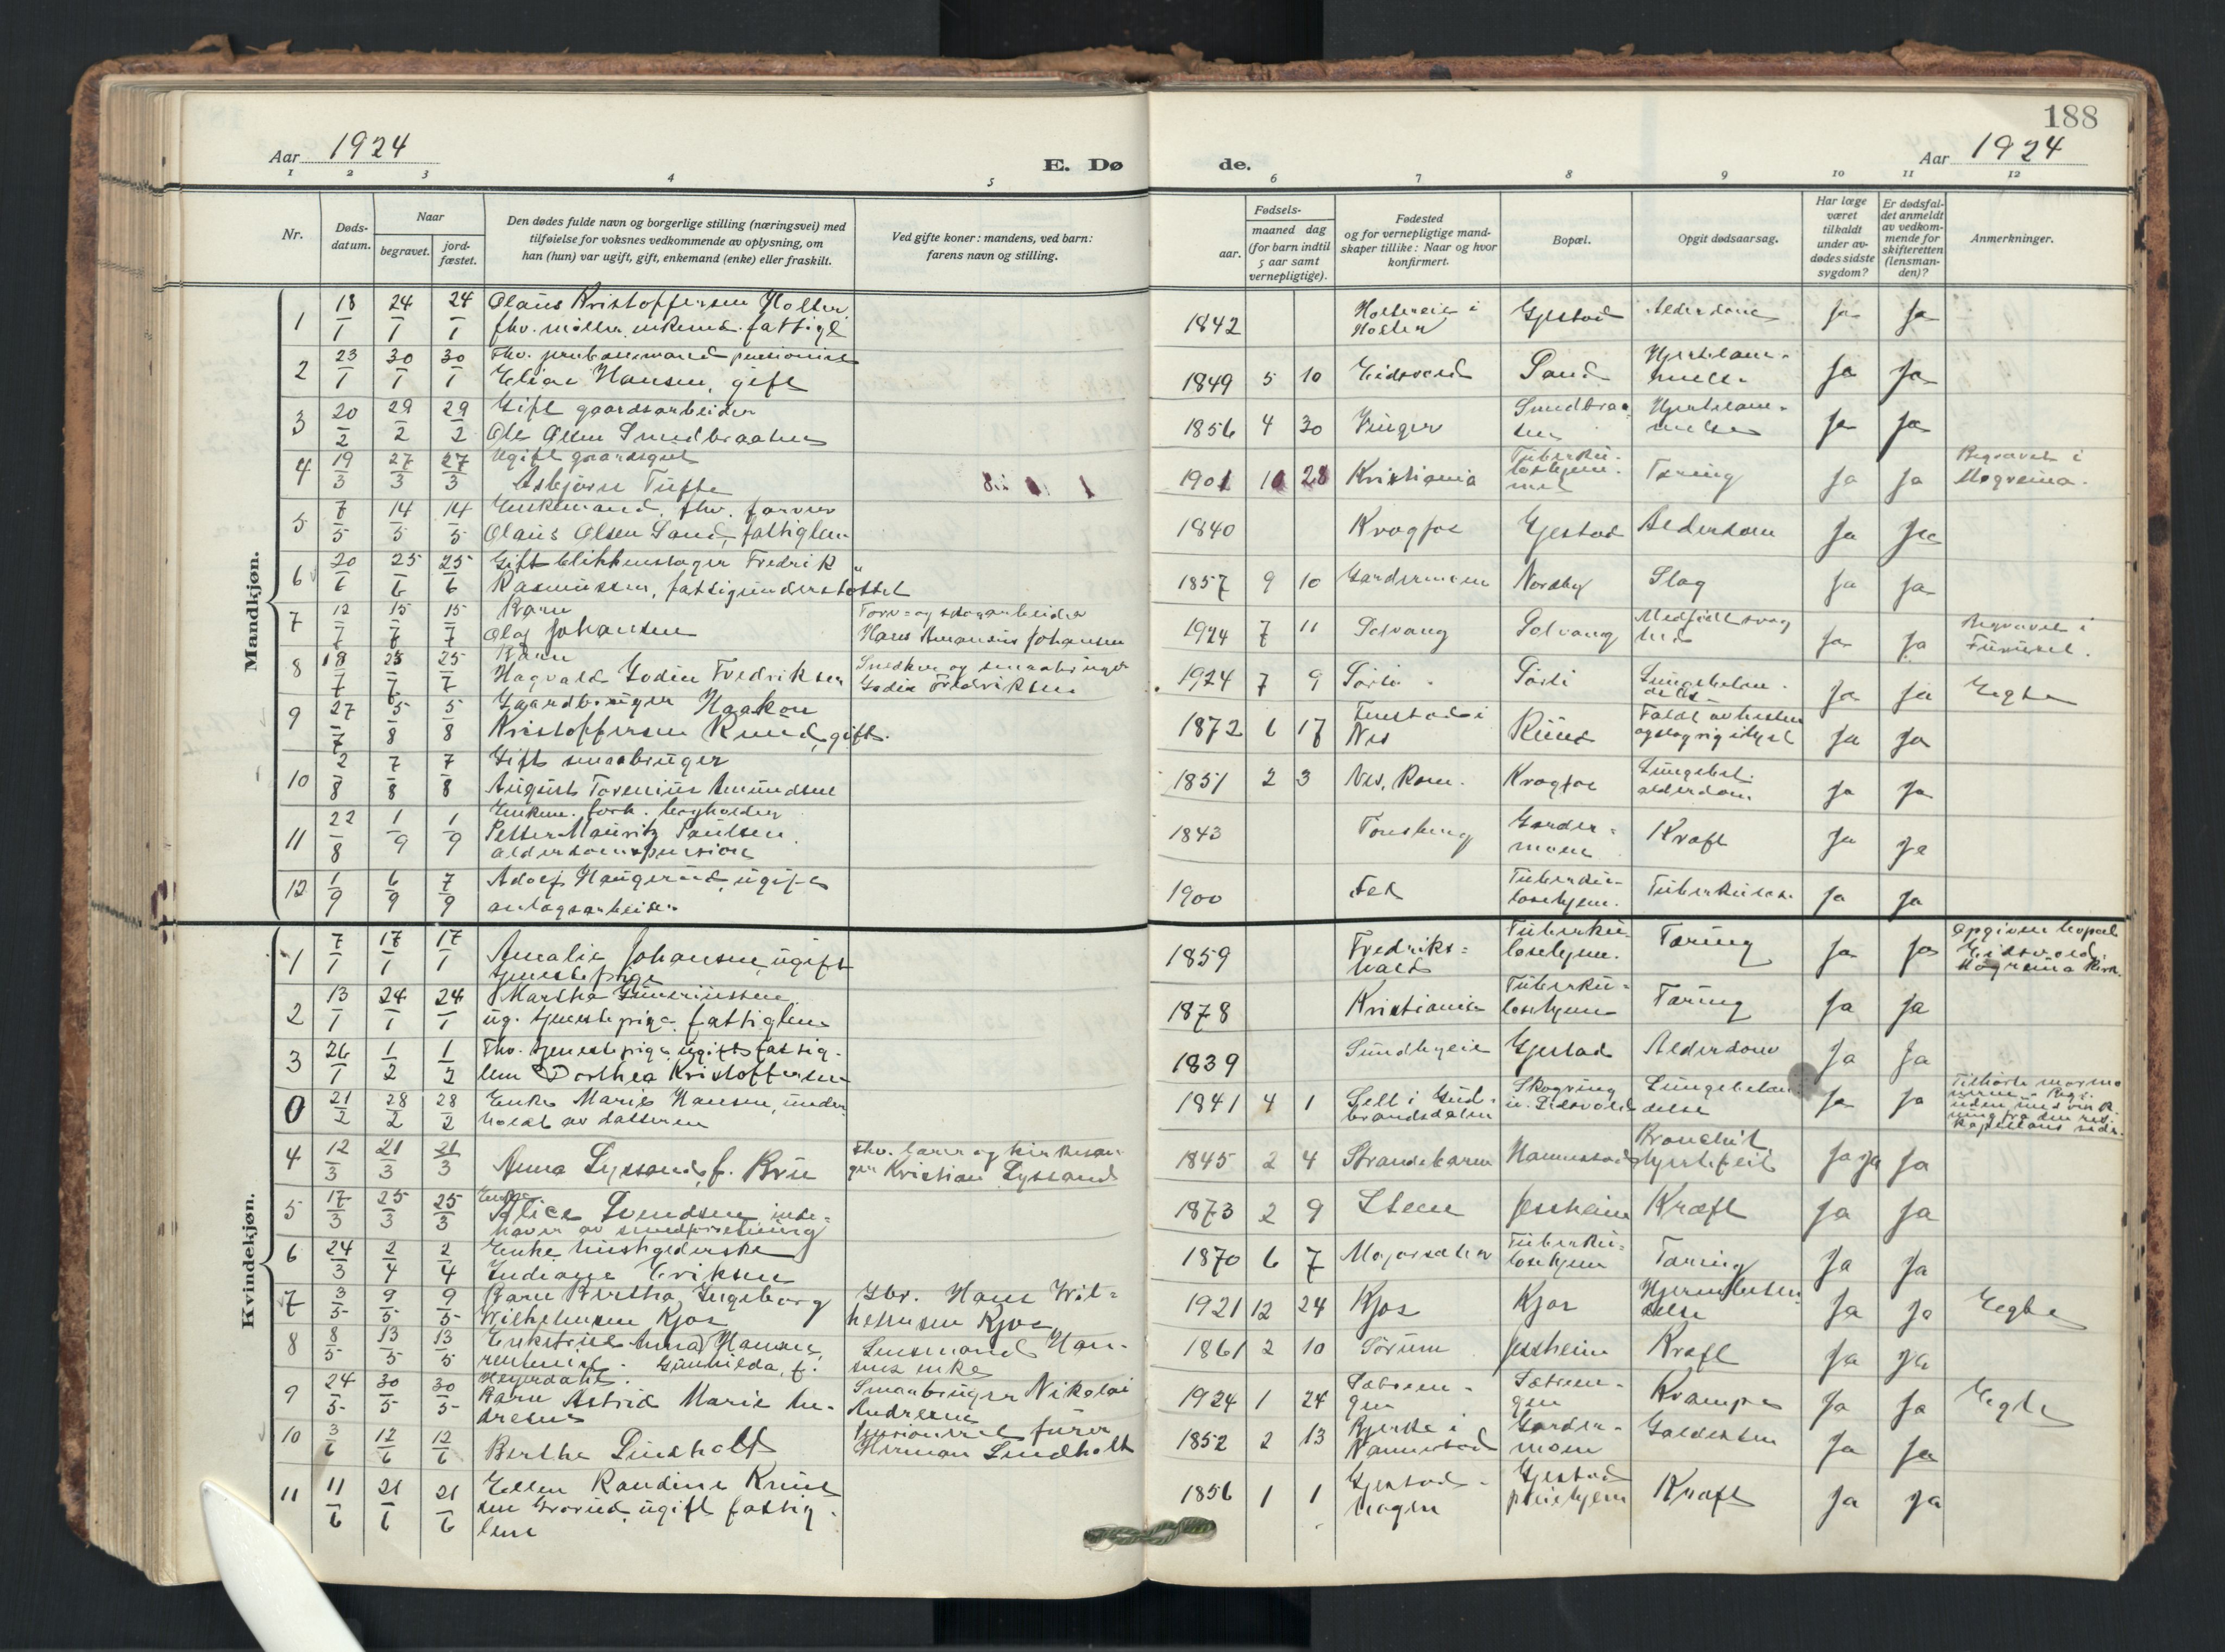 188
Aar 1924
E. Dø
de.
Aar 1924
1 2 3 4 5 6 7 8 9 10 11 12
Nr.
Døds-
datum.
Naar
begravet.
jord-
fæstet.
Den dødes fulde navn og borgerlige stilling (næringsvei) med
tilføielse for voksnes vedkommende av oplysning, om
han (hun) var ugift, gift, enkemand (enke) eller fraskilt.
Ved gifte koner: mandens, ved barn:
farens navn og stilling.
Fødsels-
aar.
maaned dag
(for barn indtil
5 aar samt
vernepligtige).
Fødested
og for vernepligtige mand-
skaper tillike: Naar og hvor
konfirmert.
Bopæl.
Opgit dødsaarsag.
Har læge
været
tilkaldt
under av-
dødes sidste
sygdom?
Er dødsfal-
det anmeldt
av vedkom-
mende for
skifteretten
(lensman-
den)?
Anmerkninger.
Mandkjøn.
1 18/1 24/1 24/1 Olaus Kristoffersen Holter
fhv. møller enkem. fattigl
1842 Holtereie i Holter Gjestad Alderdom Ja Ja
2 23/1 30/1 30/1 Fhv. jernbanemand pensionist
Elias Hansen, gift
1849 5 10 Eidsvold Sand Hjertelam-
melse Ja Ja
3 20/2 29/2 29/2 Gift gaardsarbeider
Ole Olsen Smedbraaten
1856 4 30 Vinger Smedbraa-
ten Hjertelam-
melse Ja Ja
4 19/3 27/3 27/3 Ugift gaardsgut
Asbjørn Tufte
1901 10 28 Kristiania Tuberku-
losehjem-
met Tæring Ja Ja Begravet i
Mogreina.
5 7/5 14/5 14/5 Enkemand, fhv. farver
Olaus Olsen Sand, fattiglem
1840 Krogfos Gjestad Alderdom Ja Ja
6 20/6 25/6 25/6 Gift blikkenslager Fredrik
Rasmussen, fattigunderstøttet
1857 9 10 Gardermoen Nordby Slag Ja Ja
7 12/7 15/7 15/7 Barn
Olaf Johansen
Torv= og skogarbeider
Hans Amandus Johansen
1924 7 11 Solvang Solvang Medfødt svag
het Ja Ja Begravet i
Furuset.
8 18/7 25/7 25/7 Barn
Hagvald Godin Fredriksen
Snedker og smaabruger
Godin Fredriksen
1924 7 9 Sørli Sørli Lungebeten-
delse Ja Ja Egte
9 27/7 5/8 5/8 Gaardbruger Haakon
Kristoffersen Rund, gift.
1872 6 17 Fenstad i
Nes Rund Faldt av hesten
og slog sig ihjel Ja Ja
10 2/8 7/8 7/8 Gift smaabruger
August Torenius Amundsen
1851 2 3 Nes, Rom. Krogfos Lungebet.
alderdom Ja Ja
11 22/8 1/9 1/9 Enkem. forh.
Petter Mauritz Paulsen
alderdomspension
1843 Tønsberg Garder-
moen Kræft Ja Ja
12 1/9 6/9 7/9 Adolf Haugerud, ugift
anlægsarbeider
1900 Fet Tuberku-
losehjem. Tuberkulose Ja Ja
Kvindekjøn.
1 7/1 17/1 17/1 Amalie Johansen, ugift
tjenestepige
1859 Fredriks=
hald Tuberku-
losehjem. Tæring Ja Ja Opgiven bopæl
Eidsvold.
Mogreina Kirk.
2 13/1 24/1 24/1 Martha
ug. tjenestepige, fattiglem
1878 Kristiania Tuberku-
losehjem Tæring Ja Ja
3 26/1 1/2 1/2 Fhv. tjenestepige, ugift, fattig-
lem Dorthea Kristoffersen
1839 Sundbyeie Gjestad Alderdom Ja Ja
0 21/2 28/2 28/2 Enke Marie Hansen, under
holdt av datteren
1841 4 1 Sell i Gud-
brandsdalen Skogring
u. Eidsvold Lungebeten
delse Ja Ja Tilhørte mormo
nerne.
4 12/3 21/3 21/3 Anna Lyssand, f. Bru
Fhv. lærer og kirkesan-
ger Kristian Lyssand
1845 2 4 Strandebarm Hammerstad Bronchit
hjertefeil Ja Ja Ja
5 17/3 25/3 25/3 Enke
Alice Svendsen inde-
haver av smedforretning
1873 2 9 Steen Jessheim Kræft Ja Ja
6 24/3 2/4 2/4 Enke hushjelperske
Indiane Eriksen
1870 6 7 Majorsæter Tuberku-
losehjem Tæring Ja Ja
7 3/5 9/5 9/5 Barn Bertha Ingeborg
Wilhelmsen Kjos
Gbr. Hans Wil=
helmsen Kjos
1921 12 24 Kjos Kjos Hjernebeten-
delse Ja Ja Egte
8 8/5 13/5 13/5 Enkefrue Anna Hansen,
rentenist. Gunhilda, f.
Heyerdahl.
Lensmand Han-
sens enke
1861 2 10 Sørum Jessheim Kræft Ja Ja
9 24/5 30/5 30/5 Barn Astrid Marie An-
dresen
Smaabruger Nikolai
Andresen
1924 1 24 Sætren-
gen Sætren-
gen Krampe Ja Ja Egte
10 3/6 12/6 12/6 Berthe Lindholt
Pensioneret furer
Herman Lindholt
1852 2 13 Bjerke i
Nannestad Garder-
moen Galdesten Ja Ja
11 11/6 21/6 21/6 Ellen Randine Knut
sen Grorud, ugift fattig-
lem
1856 1 1 Gjestad-
hagen Gjestad
pleiehjem Kræft Ja Ja